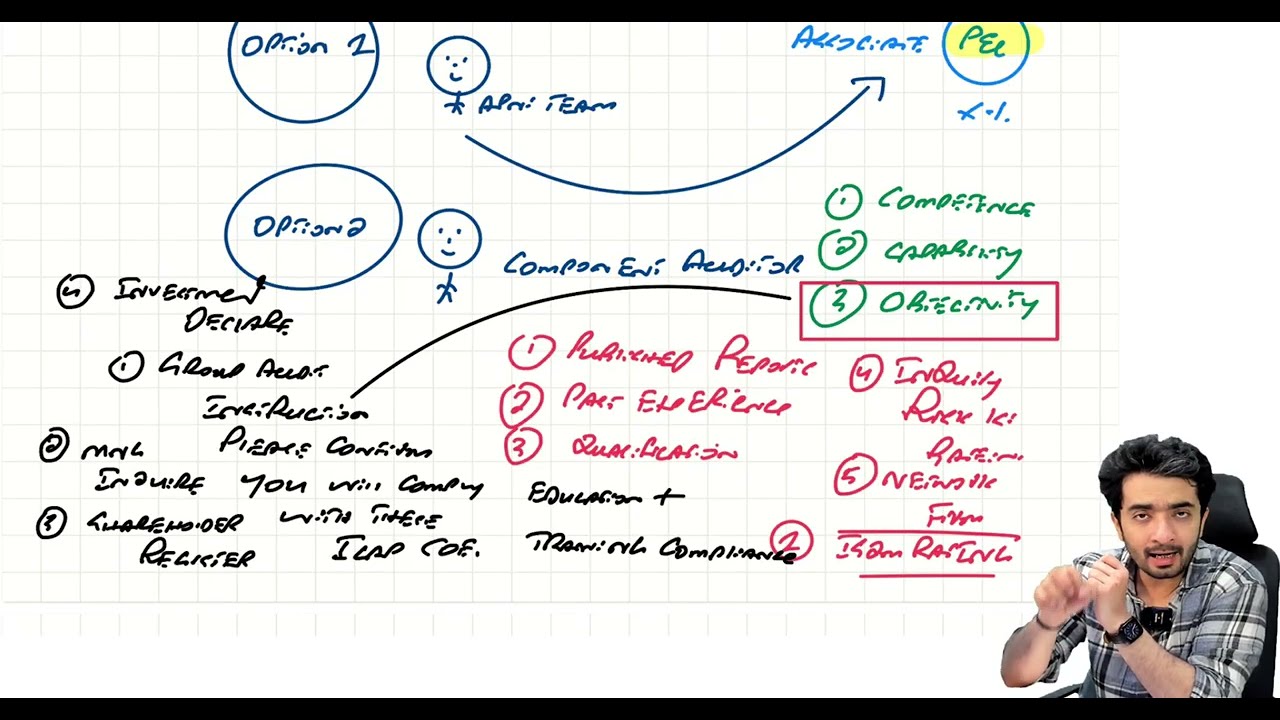 OPTION 1
APNI TEAM
ASSOCIATE
PEL
X.1.
OPTION 2
COMPONENT AUDITOR
① COMPETENCE
② CAPABILITY
③ OBJECTIVITY
④ INVESTMEN
DECLARE
① GROUP AUDIT
INSTRUCTION
PLEASE CONFIRM
YOU WILL COMPLY
WITH THESE
ICAP COE.
② MNG
INQUIRE
③ SHAREHOLDER
REGISTER
① PUBLISHED REPORTS
② PAST EXPERIENCE
③ QUALIFICATION
EDUCATION +
TRAINING COMPLIANCE
④ INQUIRY
⑤ NETWORK
FIRM
ISQM RATING